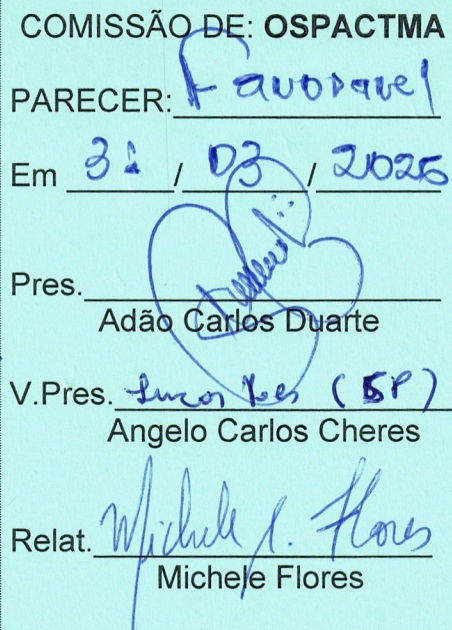 COMISSÃO DE: OSPACTMA
PARECER: Favoravel
Em 31 / 03 / 2026
Pres.
Adão Carlos Duarte
V.Pres. (SP)
Angelo Carlos Cheres
Relat. Michele S. Flores
Michele Flores